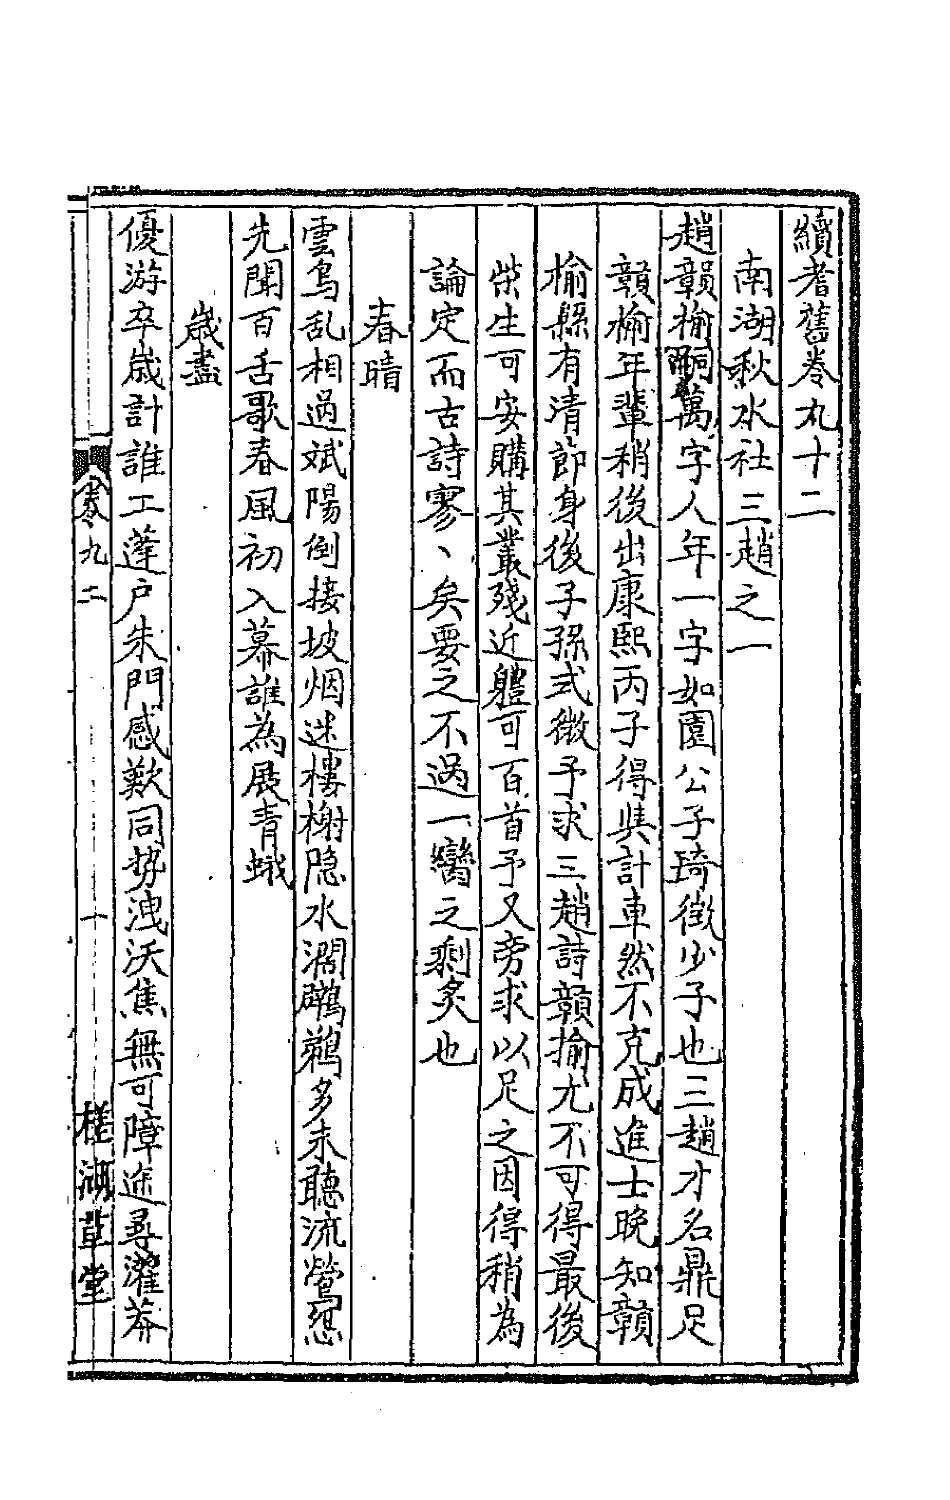 續耆舊卷九十二
南湖秋水社三趙之一
趙贛榆嗣萬字人年一字如園公子琦徵少子也三趙才名鼎足
贛榆年輩稍後出康熙丙子得與計車然不克成進士晚知贛
榆縣有清節身後子孫式微予求三趙詩贛揄尤不可得最後
柴生可安購其叢殘近體可百首予又旁求以足之因得稍為
論定而古詩寥〻矣要之不過一臠之剩炙也
春晴
雲鳥乱相過斌陽倒接坡烟迷樓榭隐水濶鸊鷉多未聽流鶯怨
先聞百舌歌春風初入幕誰為展青蛾
歲盡
優游卒歲計誰工蓬戶朱門感歎同勢洩沃焦無可障途尋灌莽
卷九二
十
槎湖草堂